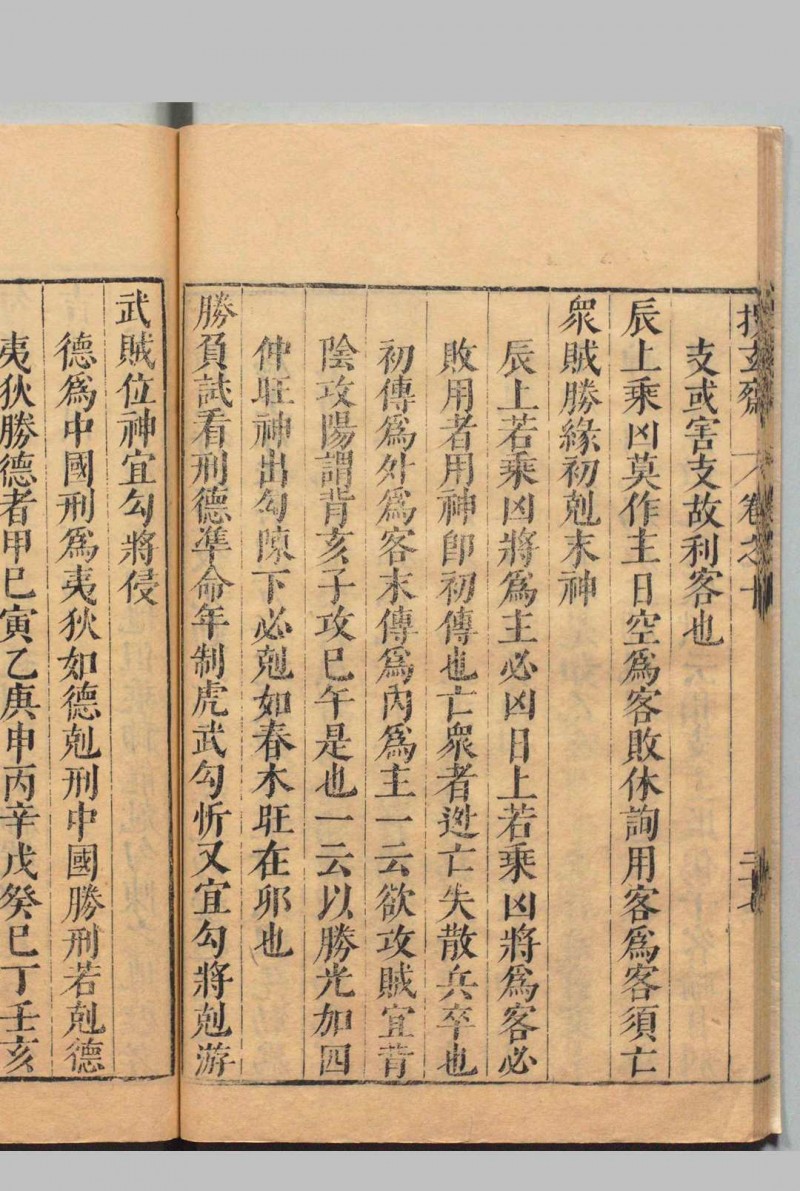 玄齋 卷之十
支或害支故利客也
辰上乘凶莫作主日空爲客敗休詢用客爲客須亡
衆賊勝緣初剋末神
辰上若乘凶將爲主必凶日上若乘凶將爲客必
敗用者用神即初傳也亡衆者迯亡失散兵卒也
初傳爲外爲客末傳爲內爲主一云欲攻賊宜背
陰攻陽謂背亥子攻巳午是也一云以勝光加四
仲旺神出勾陳下必剋如春木旺在卯也
勝負試看刑德準命年制虎武勾忻又宜勾將剋游
武賊位神宜勾將侵
德爲中國刑爲夷狄如德剋刑中國勝刑若剋德
夷狄勝德者甲巳寅乙庚申丙辛戊癸巳丁壬亥